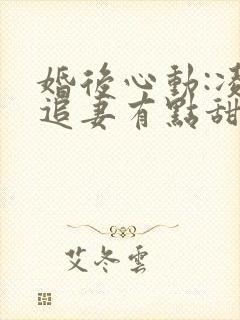 婚後心動:凌
追妻有點甜
艾冬雲